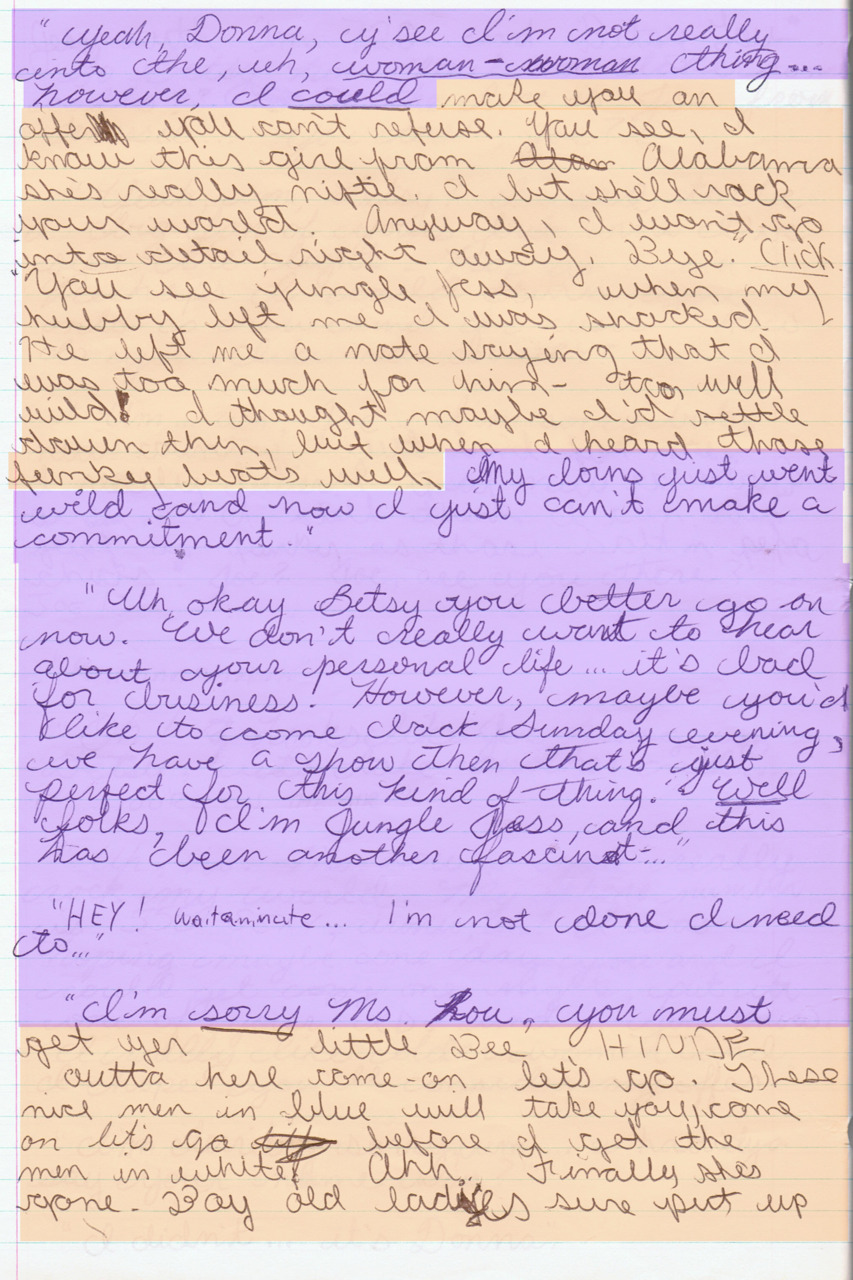 "yeah, Donna, y'see I'm not really
into the, uh, woman-woman thing...
however, I could make you an
offer you can't refuse. You see, I
know this girl from Alabama
she's really niftie. I bet she'll rock
your world. Anyway, I won't go
into detail right away. Bye." Click.
"You see jungle Jess, when my
hubby left me I was shocked
He left me a note saying that I
was too much for him- too well
wild! I thought maybe I'd settle
down then, but when I heard those
funkey beats well, My loins just went
wild and now I just can't make a
commitment."
"Uh, okay Betsy you better go on
now. We don't really want to hear
about your personal life... it's bad
for business! However, maybe you'd
like to come back Sunday evening,
we have a show then that's just
perfect for this kind of thing." "Well
folks, I'm Jungle Jess, and this
has been another fascinat-..."
"HEY! waitaminute... I'm not done I need
to..."
"I'm sorry Ms. Lou, you must
get yer little Bee HINDE
outta here come-on let's go. These
nice men in blue will take you, come
on let's go before I get the
men in white! Ahh... Finally she's
gone. Boy old ladies sure put up